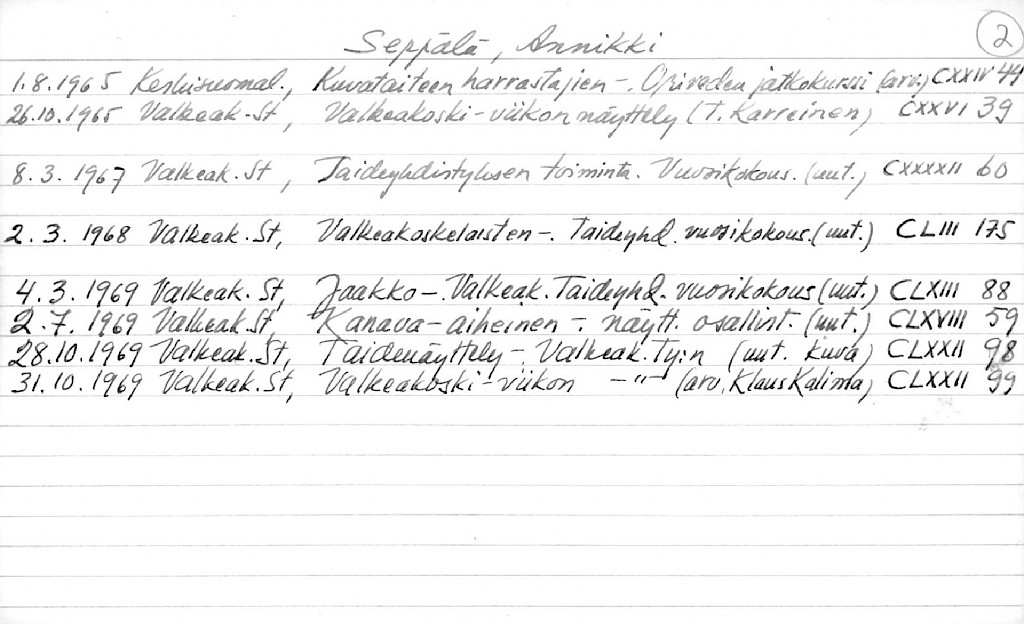 2
Seppälä, Annikki
1.8.1965 Keskisuomal., Kuvataiteen harrastajien -. Oriveden jatkokurssi (arv.) CXXIV 44
26.10.1965 Valkeak. St, Valkeakoski-viikon näyttely (T. Karreinen) CXXVI 39
8.3.1967 Valkeak. St, Taideyhdistyksen toiminta. Vuosikokous. (uut.) CXXXXII 60
2.3.1968 Valkeak. St, Valkeakoskelaisten -. Taideyhd. vuosikokous. (uut.) CLIII 175
4.3.1969 Valkeak. St, Jaakko -. Valkeak. Taideyhd. vuosikokous (uut.) CLXIII 88
2.7.1969 Valkeak. St, Kanava-aiheinen -. näytt. osallist. (uut.) CLXVIII 59
28.10.1969 Valkeak. St, Taidenäyttely -. Valkeak. Ty:n (uut. kuva) CLXXII 98
31.10.1969 Valkeak. St, Valkeakoski-viikon -"- (arv. Klaus Kalima) CLXXII 99